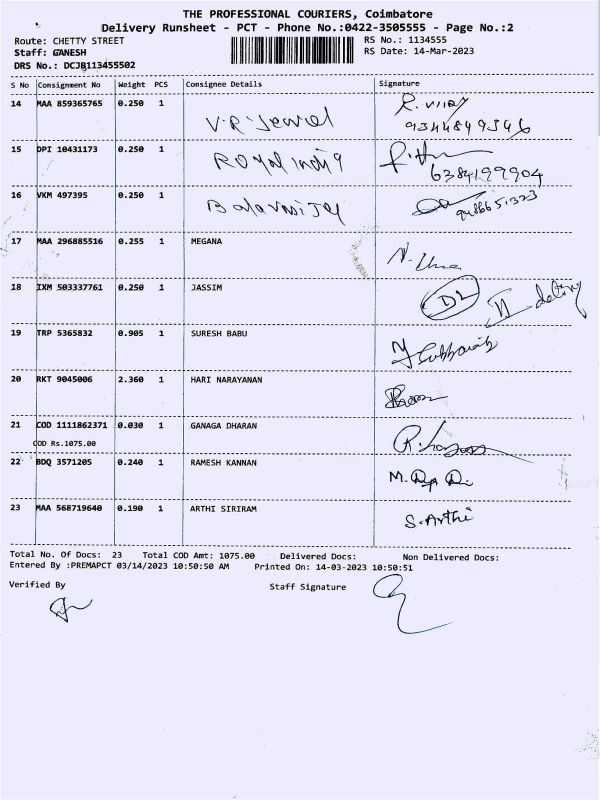 THE PROFESSIONAL COURIERS, Coimbatore
Delivery Runsheet - PCT - Phone No.:0422-3505555 - Page No.:2
Route: CHETTY STREET
RS No.: 1134555
Staff: GANESH
RS Date: 14-Mar-2023
DRS No.: DCJB113455502
S No Consignment No Weight PCS Consignee Details Signature
14 MAA 859365765 0.250 1 V.R. Jewel R. vijay
9344849346
15 DPI 10431173 0.250 1 Royal india
6384199904
16 VKM 497395 0.250 1
9486651323
17 MAA 296885516 0.255 1 MEGANA N. Uma
18 IXM 503337761 0.250 1 JASSIM DL
19 TRP 5365832 0.905 1 SURESH BABU
20 RKT 9045006 2.360 1 HARI NARAYANAN
21 COD 1111862371 0.030 1 GANAGA DHARAN
COD Rs.1075.00
22 BDQ 3571205 0.240 1 RAMESH KANNAN
23 MAA 568719640 0.190 1 ARTHI SIRIRAM S. Arthi
Total No. Of Docs: 23 Total COD Amt: 1075.00 Delivered Docs: Non Delivered Docs:
Entered By :PREMAPCT 03/14/2023 10:50:50 AM Printed On: 14-03-2023 10:50:51
Verified By Staff Signature